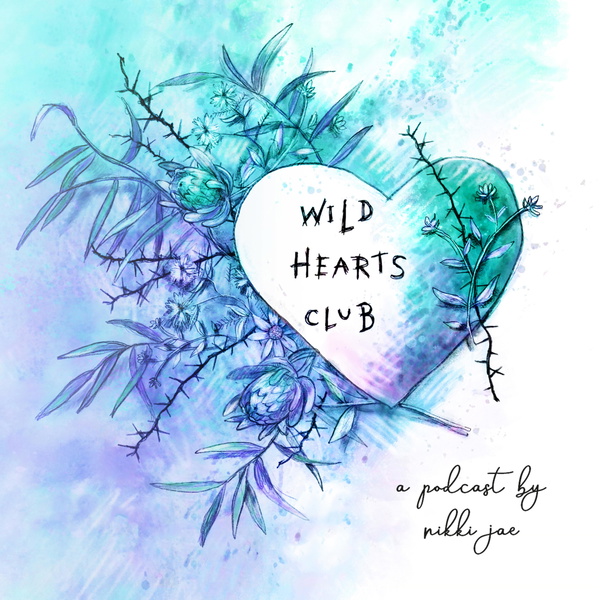 WILD
HEARTS
CLUB
a podcast by
nikki jae